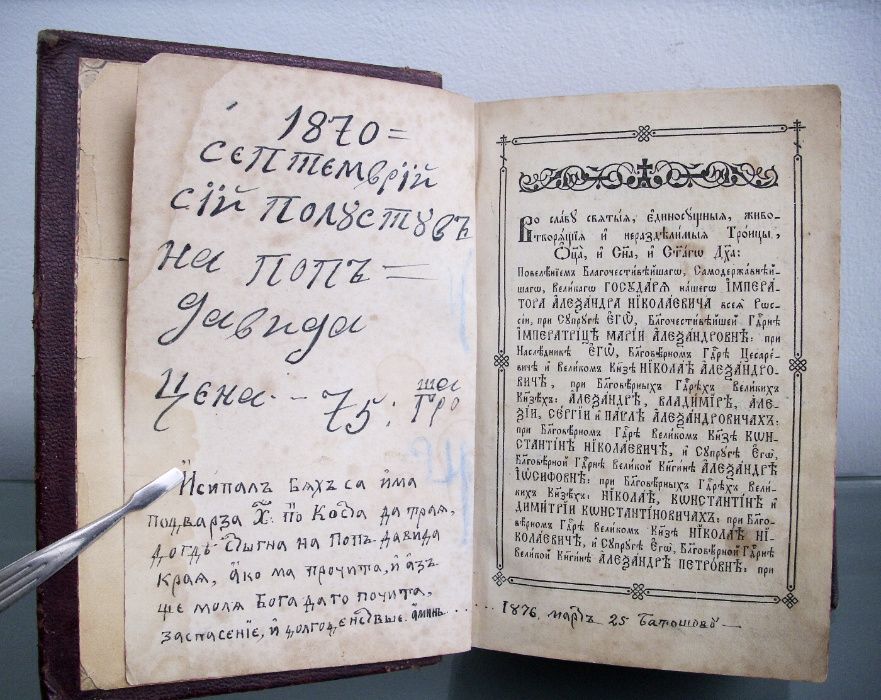 1870=
септемврїй
сїй полуствъ
на попъ=
давида
Цена·-75: ша
гро
Ѝсипалъ бяхъ са има
подварза
догдѣ стигна на Попъ давида
края, ако ма прочита, и азъ
ще моля Бога да го почита,
заспасенїе, и долгоденствые. аминь.....
Во славу свѧтыѧ, єдиносꙋщныѧ, живо-
творѧщїѧ и нераздѣлимыѧ Троицы,
Ѻц҃а, и Сн҃а, и Ст҃агѡ Дх҃а:
Повелѣнїемъ Благочестивѣйшагѡ, Самодержавнѣй-
шагѡ, Великагѡ ГОСУДАРѦ нашегѡ ІМПЕРА-
ТОРА АЛЕѮАНДРА НІКОЛАЕВИЧА всеѧ Рѡс-
сїи, при Сꙋпрꙋгѣ ЄГѠ, Благочестивѣйшей Гдⷭ҇рнѣ
ІМПЕРАТРІЦѢ МАРІИ АЛЕѮАНДРОВНѢ: при
Наслѣдникѣ ЄГѠ, Бл҃говѣрномъ Гдⷭ҇рѣ Цесаре-
вичѣ и Великомъ Кн҃зѣ НІКОЛАѢ АЛЕѮАНДРО-
ВИЧѢ, при Благовѣрныхъ Гдⷭ҇рѣхъ Великихъ
Кн҃зѣхъ: АЛЕѮАНДРѢ, ВЛАДИМІРѢ, АЛЕ-
ѮІИ, СЕРГІИ и ПАѴЛѢ АЛЕѮАНДРОВИЧАХЪ:
при Бл҃говѣрномъ Гдⷭ҇рѣ Великомъ Кн҃зѣ КѠН-
СТАНТІНѢ НІКОЛАЕВИЧѢ, и Сꙋпрꙋгѣ Єгѡ̀,
Бл҃говѣрной Гдⷭ҇рнѣ Великой Кн҃гинѣ АЛЕѮАНДРѢ
ІѠСИФОВНѢ: при Благовѣрныхъ Гдⷭ҇рѣхъ Вели-
кихъ Кн҃зѣхъ: НІКОЛАѢ, КѠНСТАНТІНѢ и
ДИМИТРІИ КѠНСТАНТІНОВИЧАХЪ: при Бл҃го-
вѣрномъ Гдⷭ҇рѣ Великомъ Кн҃зѣ НІКОЛАѢ НІ-
КОЛАЕВИЧѢ, и Сꙋпрꙋгѣ Єгѡ̀, Бл҃говѣрной Гдⷭ҇рнѣ
Великой Кн҃гинѣ АЛЕѮАНДРѢ ПЕТРОВНѢ: при
1876, мартъ 25 Батошово